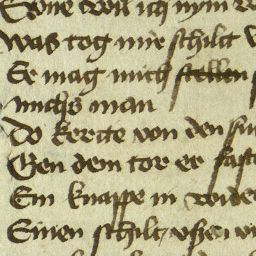 Sone will ich nym
Was tog mir schilt
Er mag mich stellen
michs man
Do kerete von den
Gen dem tor er fast
Ein knappe in wider
Einen schilt vßen